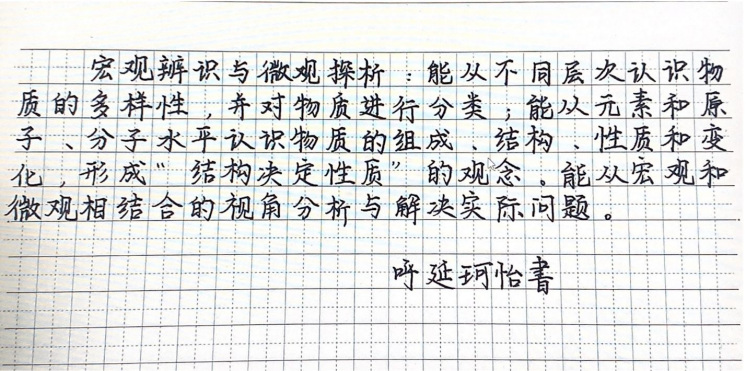 宏观辨识与微观探析：能从不同层次认识物
质的多样性，并对物质进行分类；能从元素和原
子、分子水平认识物质的组成、结构、性质和变
化，形成“结构决定性质”的观念。能从宏观和
微观相结合的视角分析与解决实际问题。
呼延珂怡書